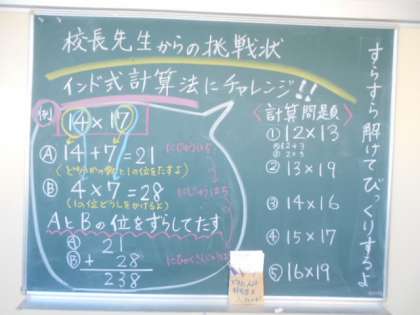 校長先生からの挑戦状
インド式計算法にチャレンジ!!
例 14×17
Ⓐ 14+7=21
Ⓑ 4×7=28
(1の位どうしをかけるよ)
AとBの位をずらしてたす
Ⓐ 21
Ⓑ + 28
238
〈計算問題〉
① 12×13
Ⓐ12+3
Ⓑ2×3
② 13×19
③ 14×16
④ 15×17
⑤ 16×19
すらすら解けてびっくりするよ